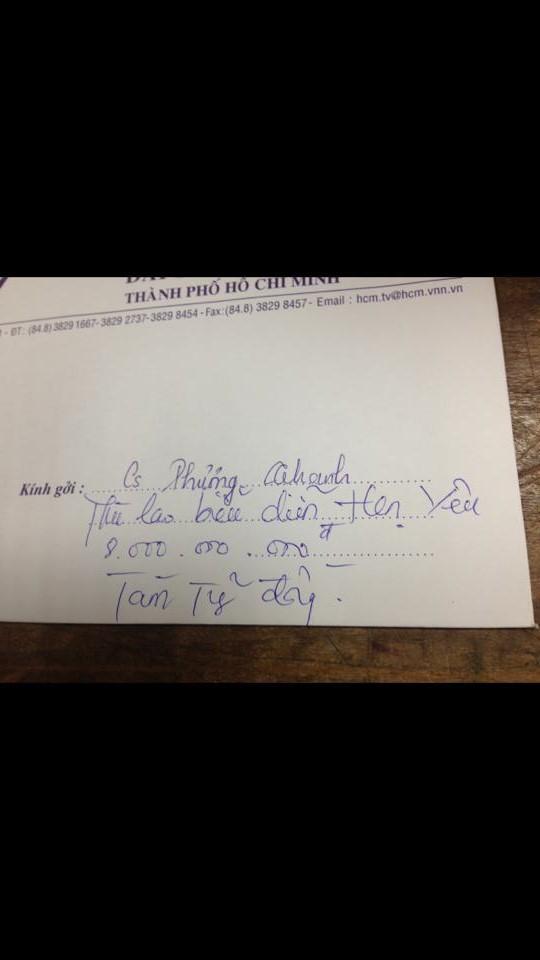 THÀNH PHỐ HỒ CHÍ MINH
- ĐT: (84.8) 3829 1667- 3829 2737-3829 8454 - Fax:(84.8) 3829 8457 - Email : hcm.tv@hcm.vnn.vn
Kính gởi : Cs Phương Khanh
Thù lao biểu diễn Hẹn Yêu
8.000.000.000đ
Tám Tỷ đồng.